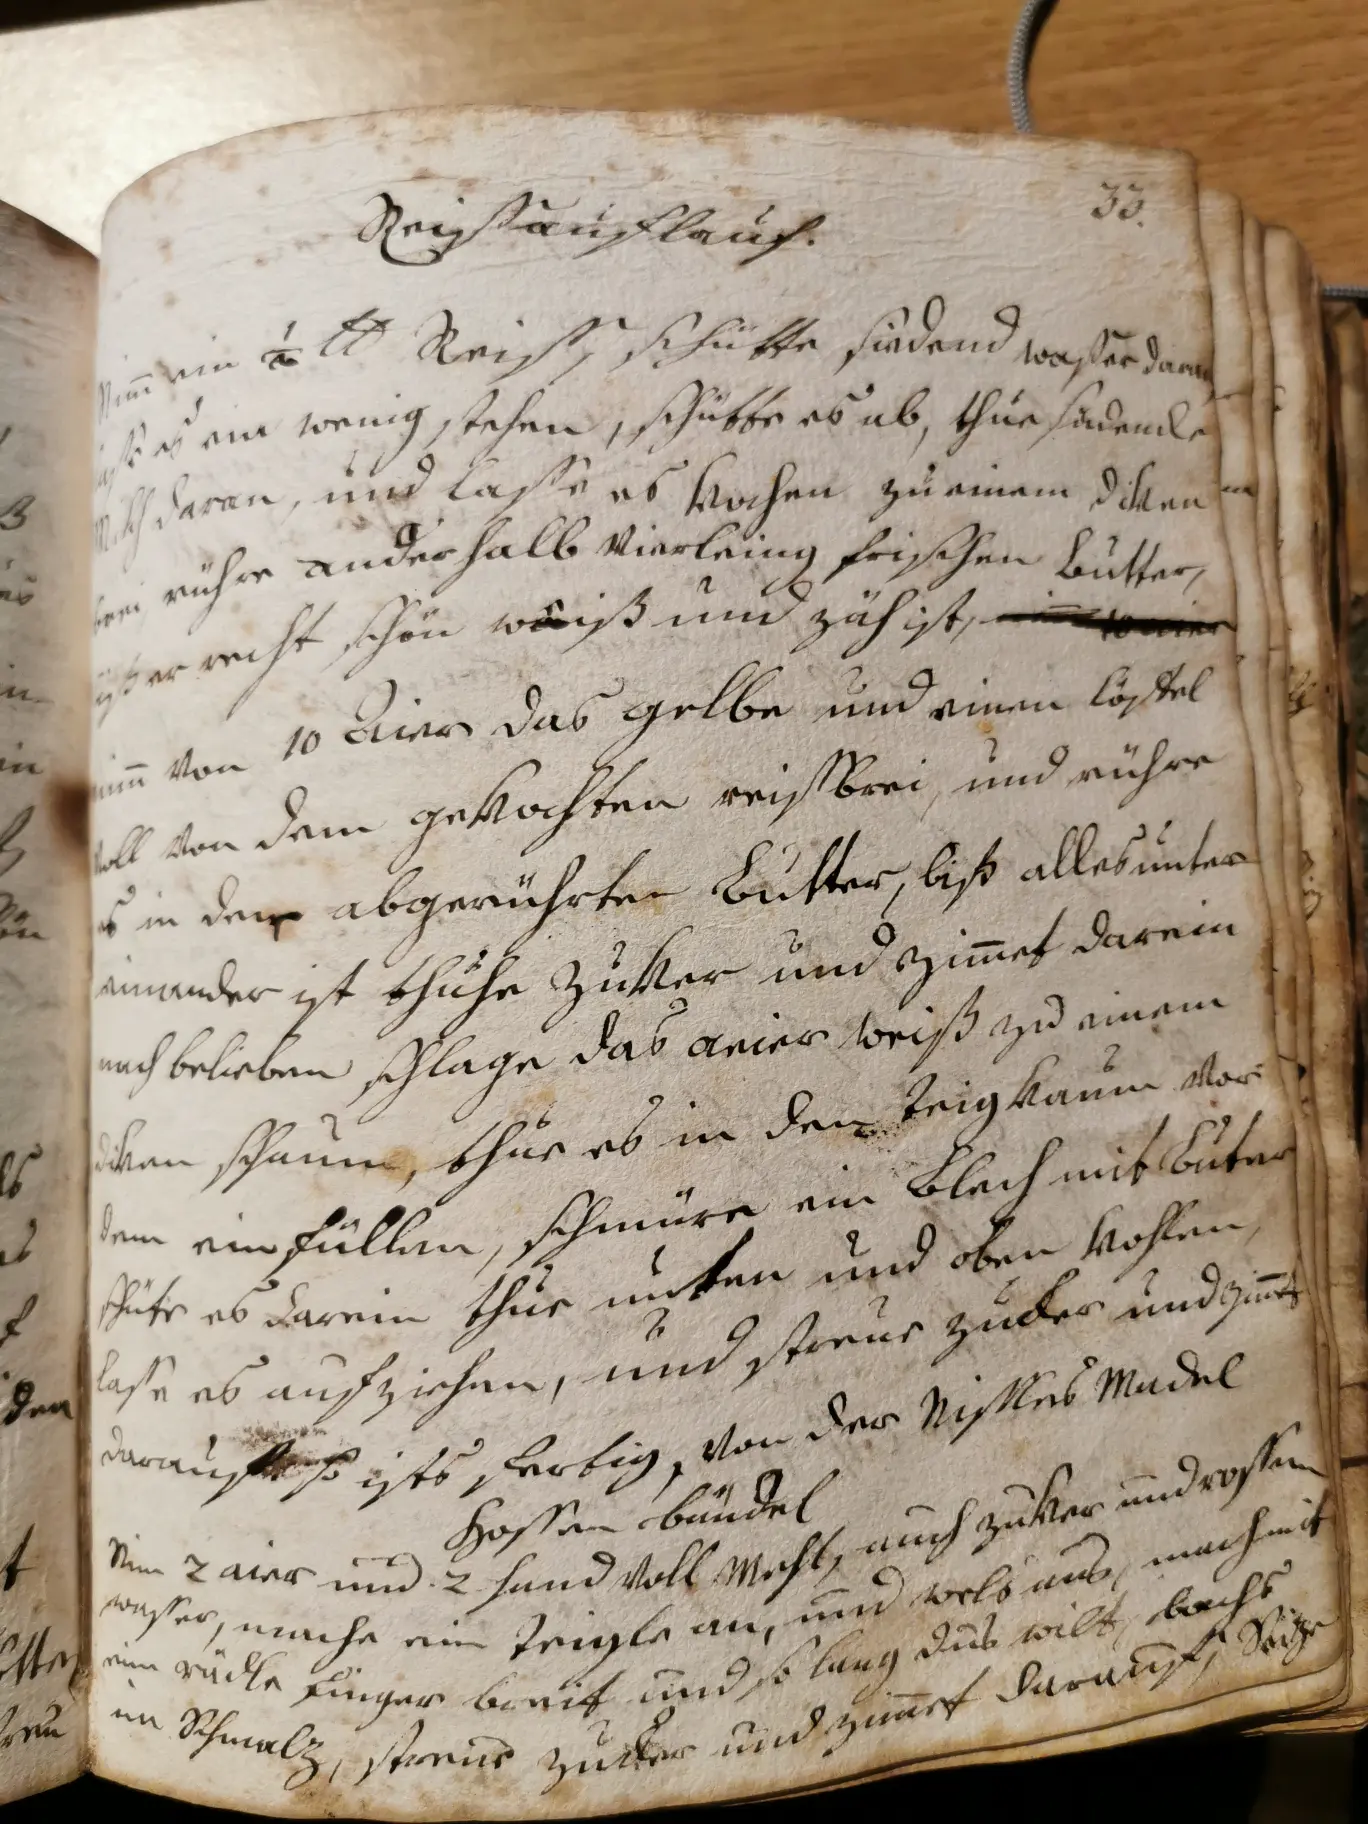 33.
Reißauflauf.
Nimm ein ½ ℔ Reiß, schütte siedend wasser daran
laße es ein wenig stehen, schütte es ab, thue siedende
Milch daran, und laße es kochen zu einem diken
brei, rühre anderhalb Vierleing frischen Butter,
biß er recht schön weiß und zäh ist,
nimm von 10 Aier das gelbe und einen löffel
voll von dem gekochten reißbrei, und rühre
es in den abgerührten Butter, biß alles unter
einander ist thuhe Zuker und Zimmet darein
nach belieben schlage das aeier weiß zu einem
diken schaum, thue es in den teig kaum vor
dem einfüllen, schmüre ein Blech mit buter
schüte es darein thue unten und oben kohlen,
laße es aufziehen, und streue zucker und zimmet
darauf so ists fertig, von der Madel
Hossen bändel
Nim 2 aier und 2 hand voll Mehl, auch zuker und roßen
waßer, mache ein teigle an, und wels aus, mach mit
eim rädle finger breit und so lang dus wilt, bachs
im Schmalz, streue zucker und zimmet darauf,